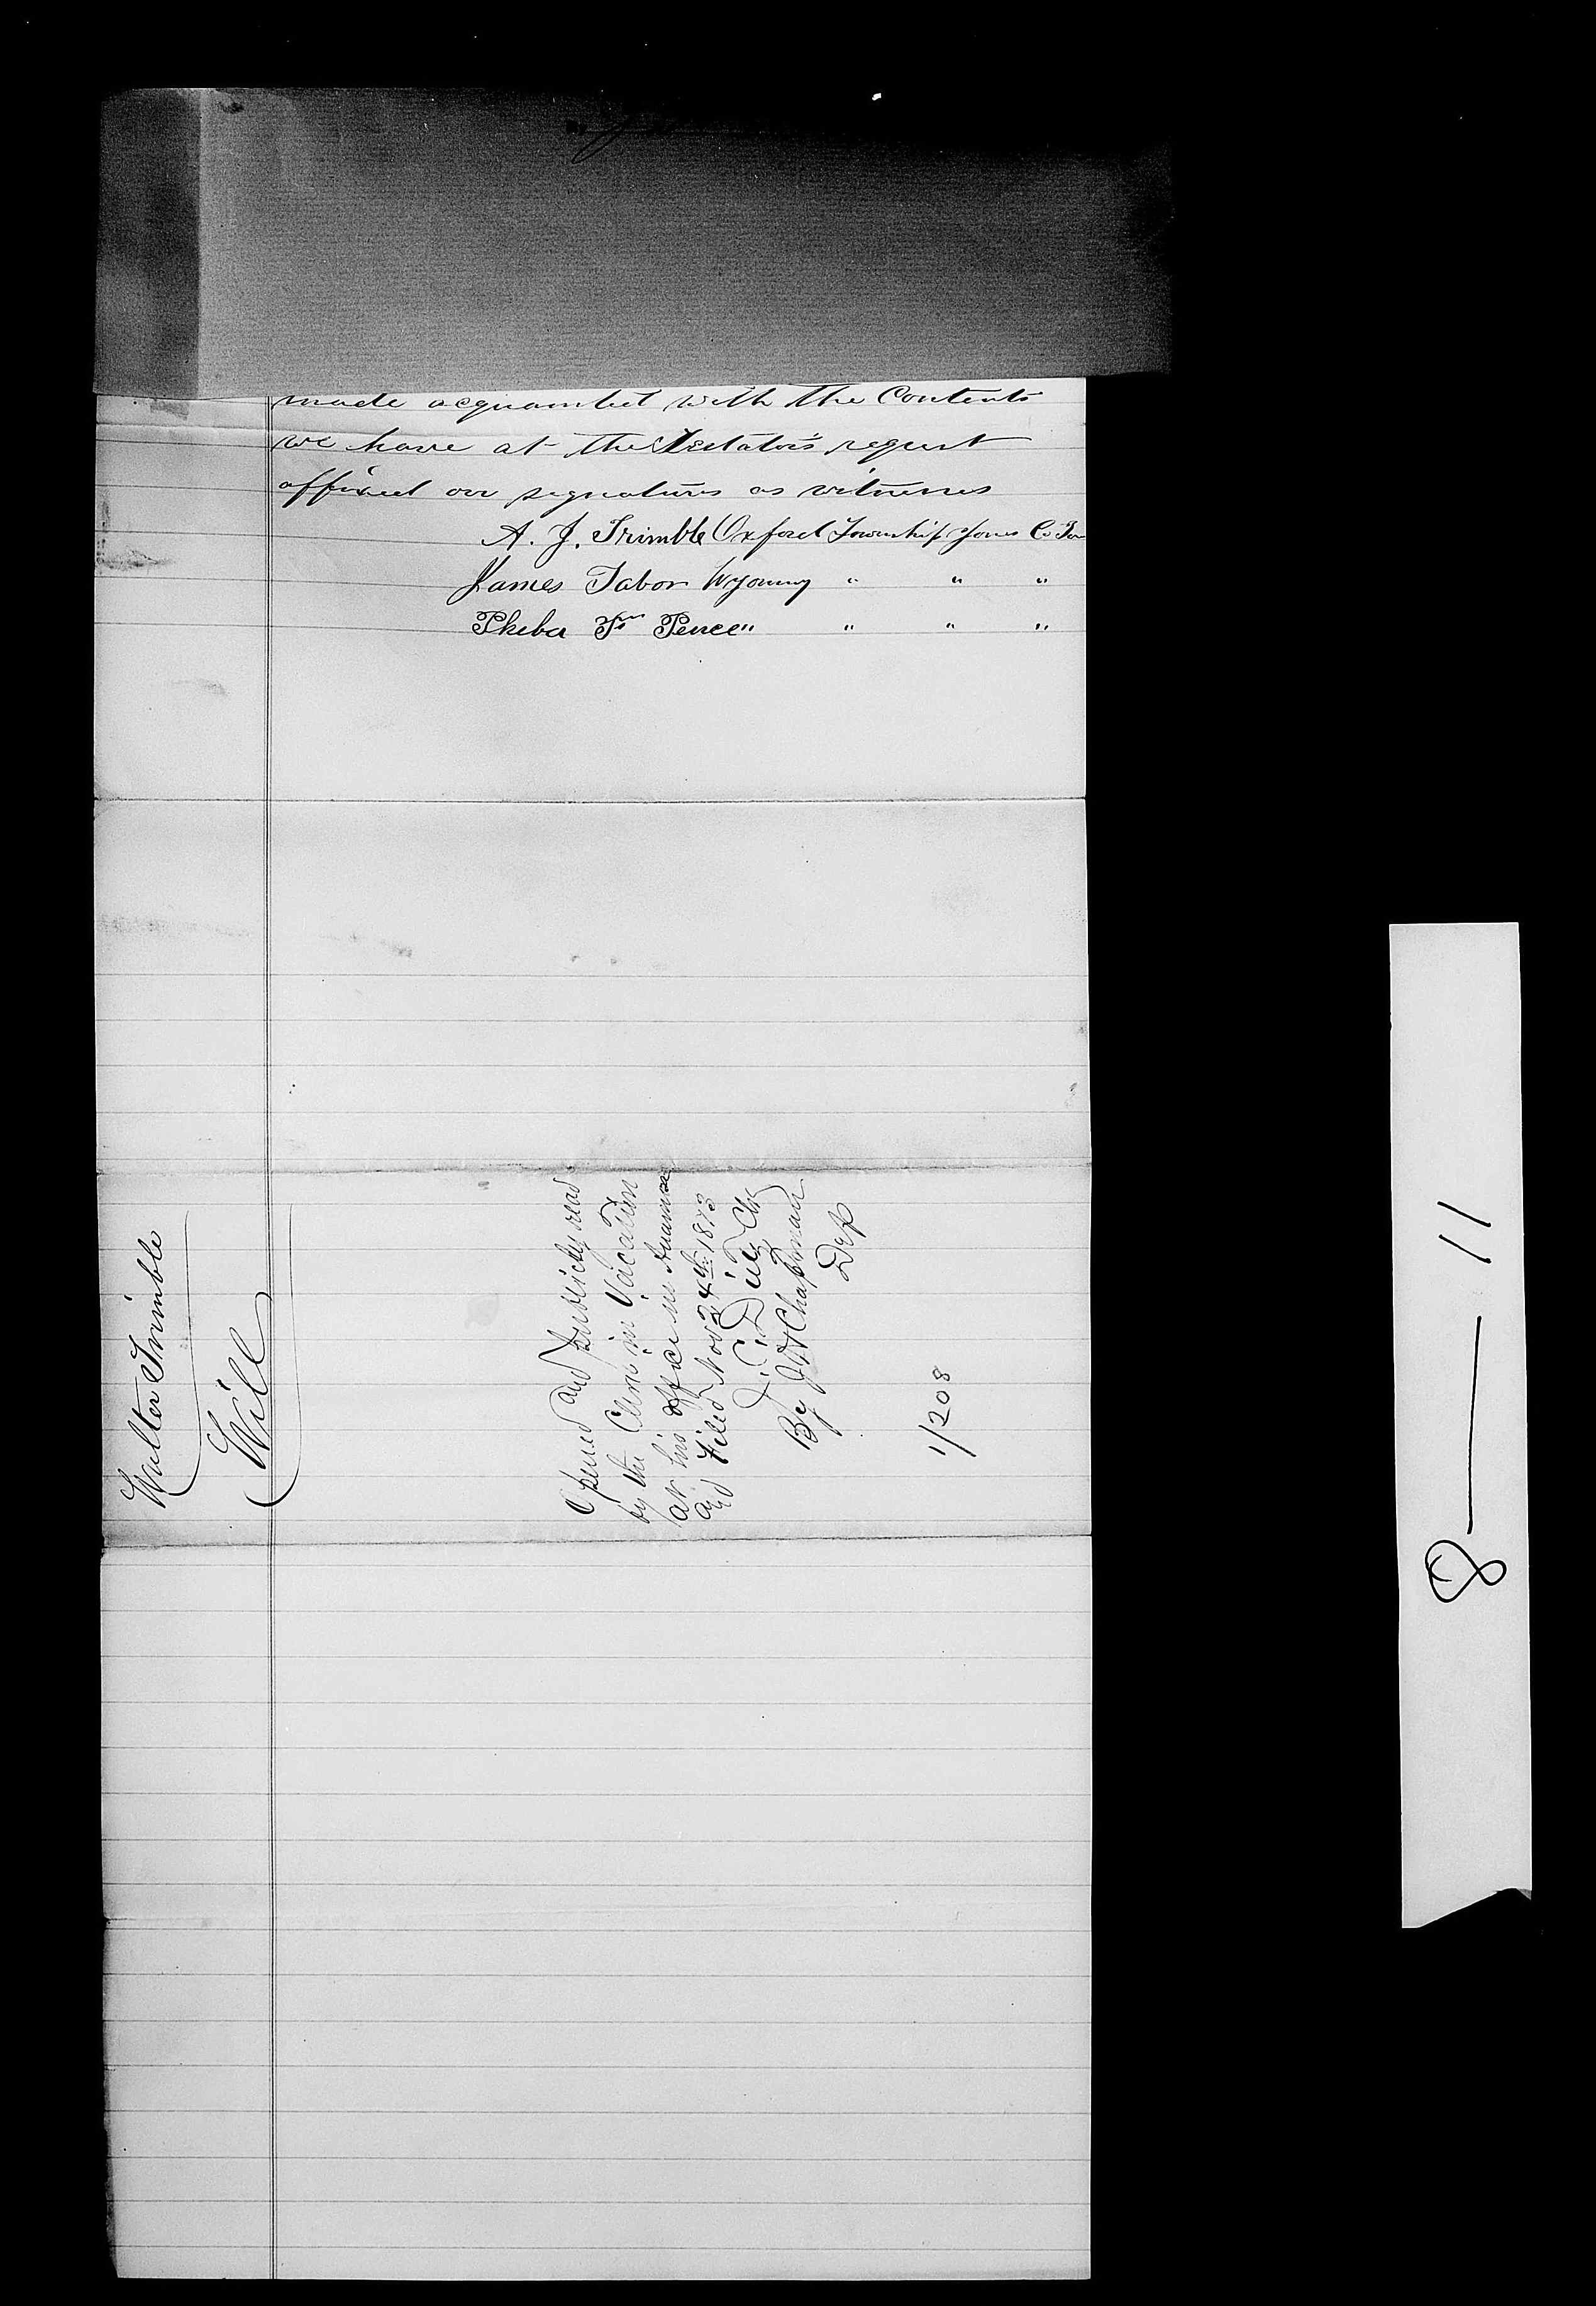 made acquainted with the Contents
we have at the Testator's request
affixed our signatures as witnesses
A. J. Trimble Oxford Township Jones Co Iow
James Tabor Wyoming " " "
Pheba Pence " " " "
Walter Trimble
Will
Opened and publicly read
by the Clerk in Vacation
at his office in Anamosa
and Filed Nov 24th 1873
J. C. Dietz Clk
By J H Chapman
Dep
1/208
8 — 11